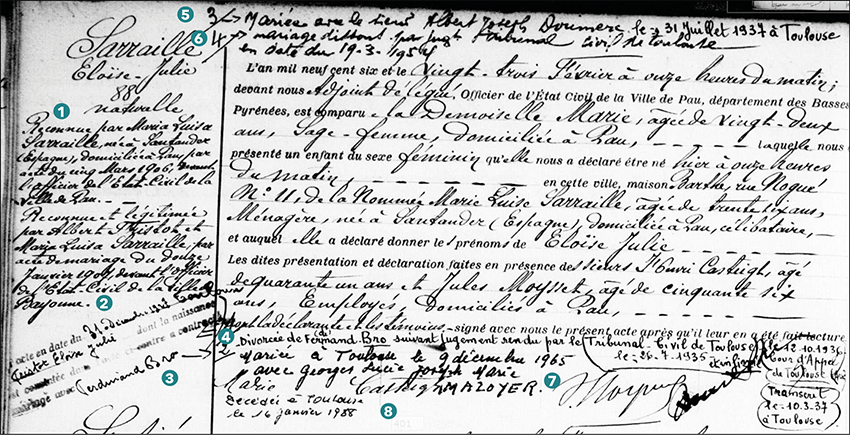 5 3 Mariée avec le sieur Albert Joseph Doumerc le 31 Juillet 1937 à Toulouse
6 4 mariage dissous par jugt Tribunal civil de Toulouse
en date du 19-3-1954
Sarraille
Eloise-Julie
88
naturelle
1
Reconnue par Maria Luisa
Sarraille, née à Santander
(Espagne), domiciliée à Pau, par
acte du cinq Mars 1906, devant
l'officier de l'État Civil de la
Ville de Pau.
Reconnue et légitimée
par Albert et
Maria Luisa Sarraille, par
acte de mariage du douze
Janvier 1907, devant l'officier
de l'État Civil de la ville de
Bayonne.
2
acte en date du 31 décembre
Eloise Julie dont la naissance
est constatée dans acte contre a contracté
mariage avec Ferdinand Bro
3
L'an mil neuf cent six et le Vingt-trois Février à onze heures du matin;
devant nous Adjoint délégué, Officier de l'État Civil de la Ville de Pau, département des Basses-
Pyrénées, est comparu e la Demoiselle Marie, agée de Vingt-Deux
ans, Sage-femme, domiciliée à Pau, laquelle nous
présenté un enfant du sexe féminin qu'elle nous a déclaré être né hier à onze heures
du matin, en cette ville, maison Barthe, rue Nogué
N° 11, de la Nommée Marie Luise Sarraille, agée de trente six ans,
Ménagère, née à Santander (Espagne), domiciliée à Pau, célibataire,
et auquel elle a déclaré donner le s prénoms de Eloise Julie
Les dites présentation et déclaration faites en présence des sieurs Henri Casteigh, agé
de quarante un ans et Jules Moysset, agé de cinquante six
ans, Employés, domiciliés à Pau
dont la déclarante et les témoins signé avec nous le présent acte après qu'il leur en a été fait lecture
4 Divorcée de Fernand Bro suivant jugement rendu par le Tribunal Civil de Toulouse
le 26.7.1935
le 12.10.1936
Cour d'Appel
de Toulouse
Transcrit
le 10.3.37
à Toulouse
Mariée à Toulouse le 9 décembre 1965
avec Georges Lucie Joseph Marie
MAZOYER. 7
Marie Casteigh
Décédée à Toulouse
le 16 janvier 1988
8
901